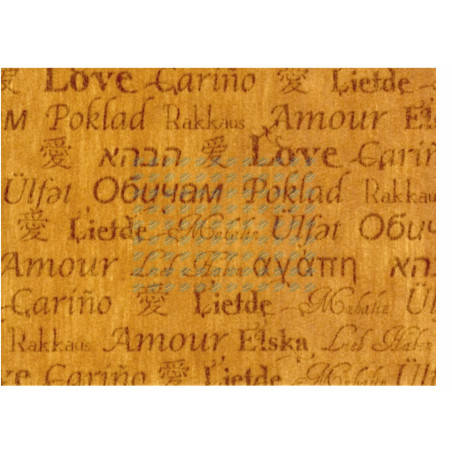 Love Cariño 愛 Liefde
ам Poklad Rakkaus Amour Els
愛 אהבה 愛 Love Cariñ
Ülfət Обичам Poklad Rakka
愛 Liefde Mahalie Ülfət Обич
Amour αγάπη
Cariño 愛 Liefde Mahalie Ül
Rakkaus Amour Elska
e Cariño 愛 Liefde Mahalie Ülf